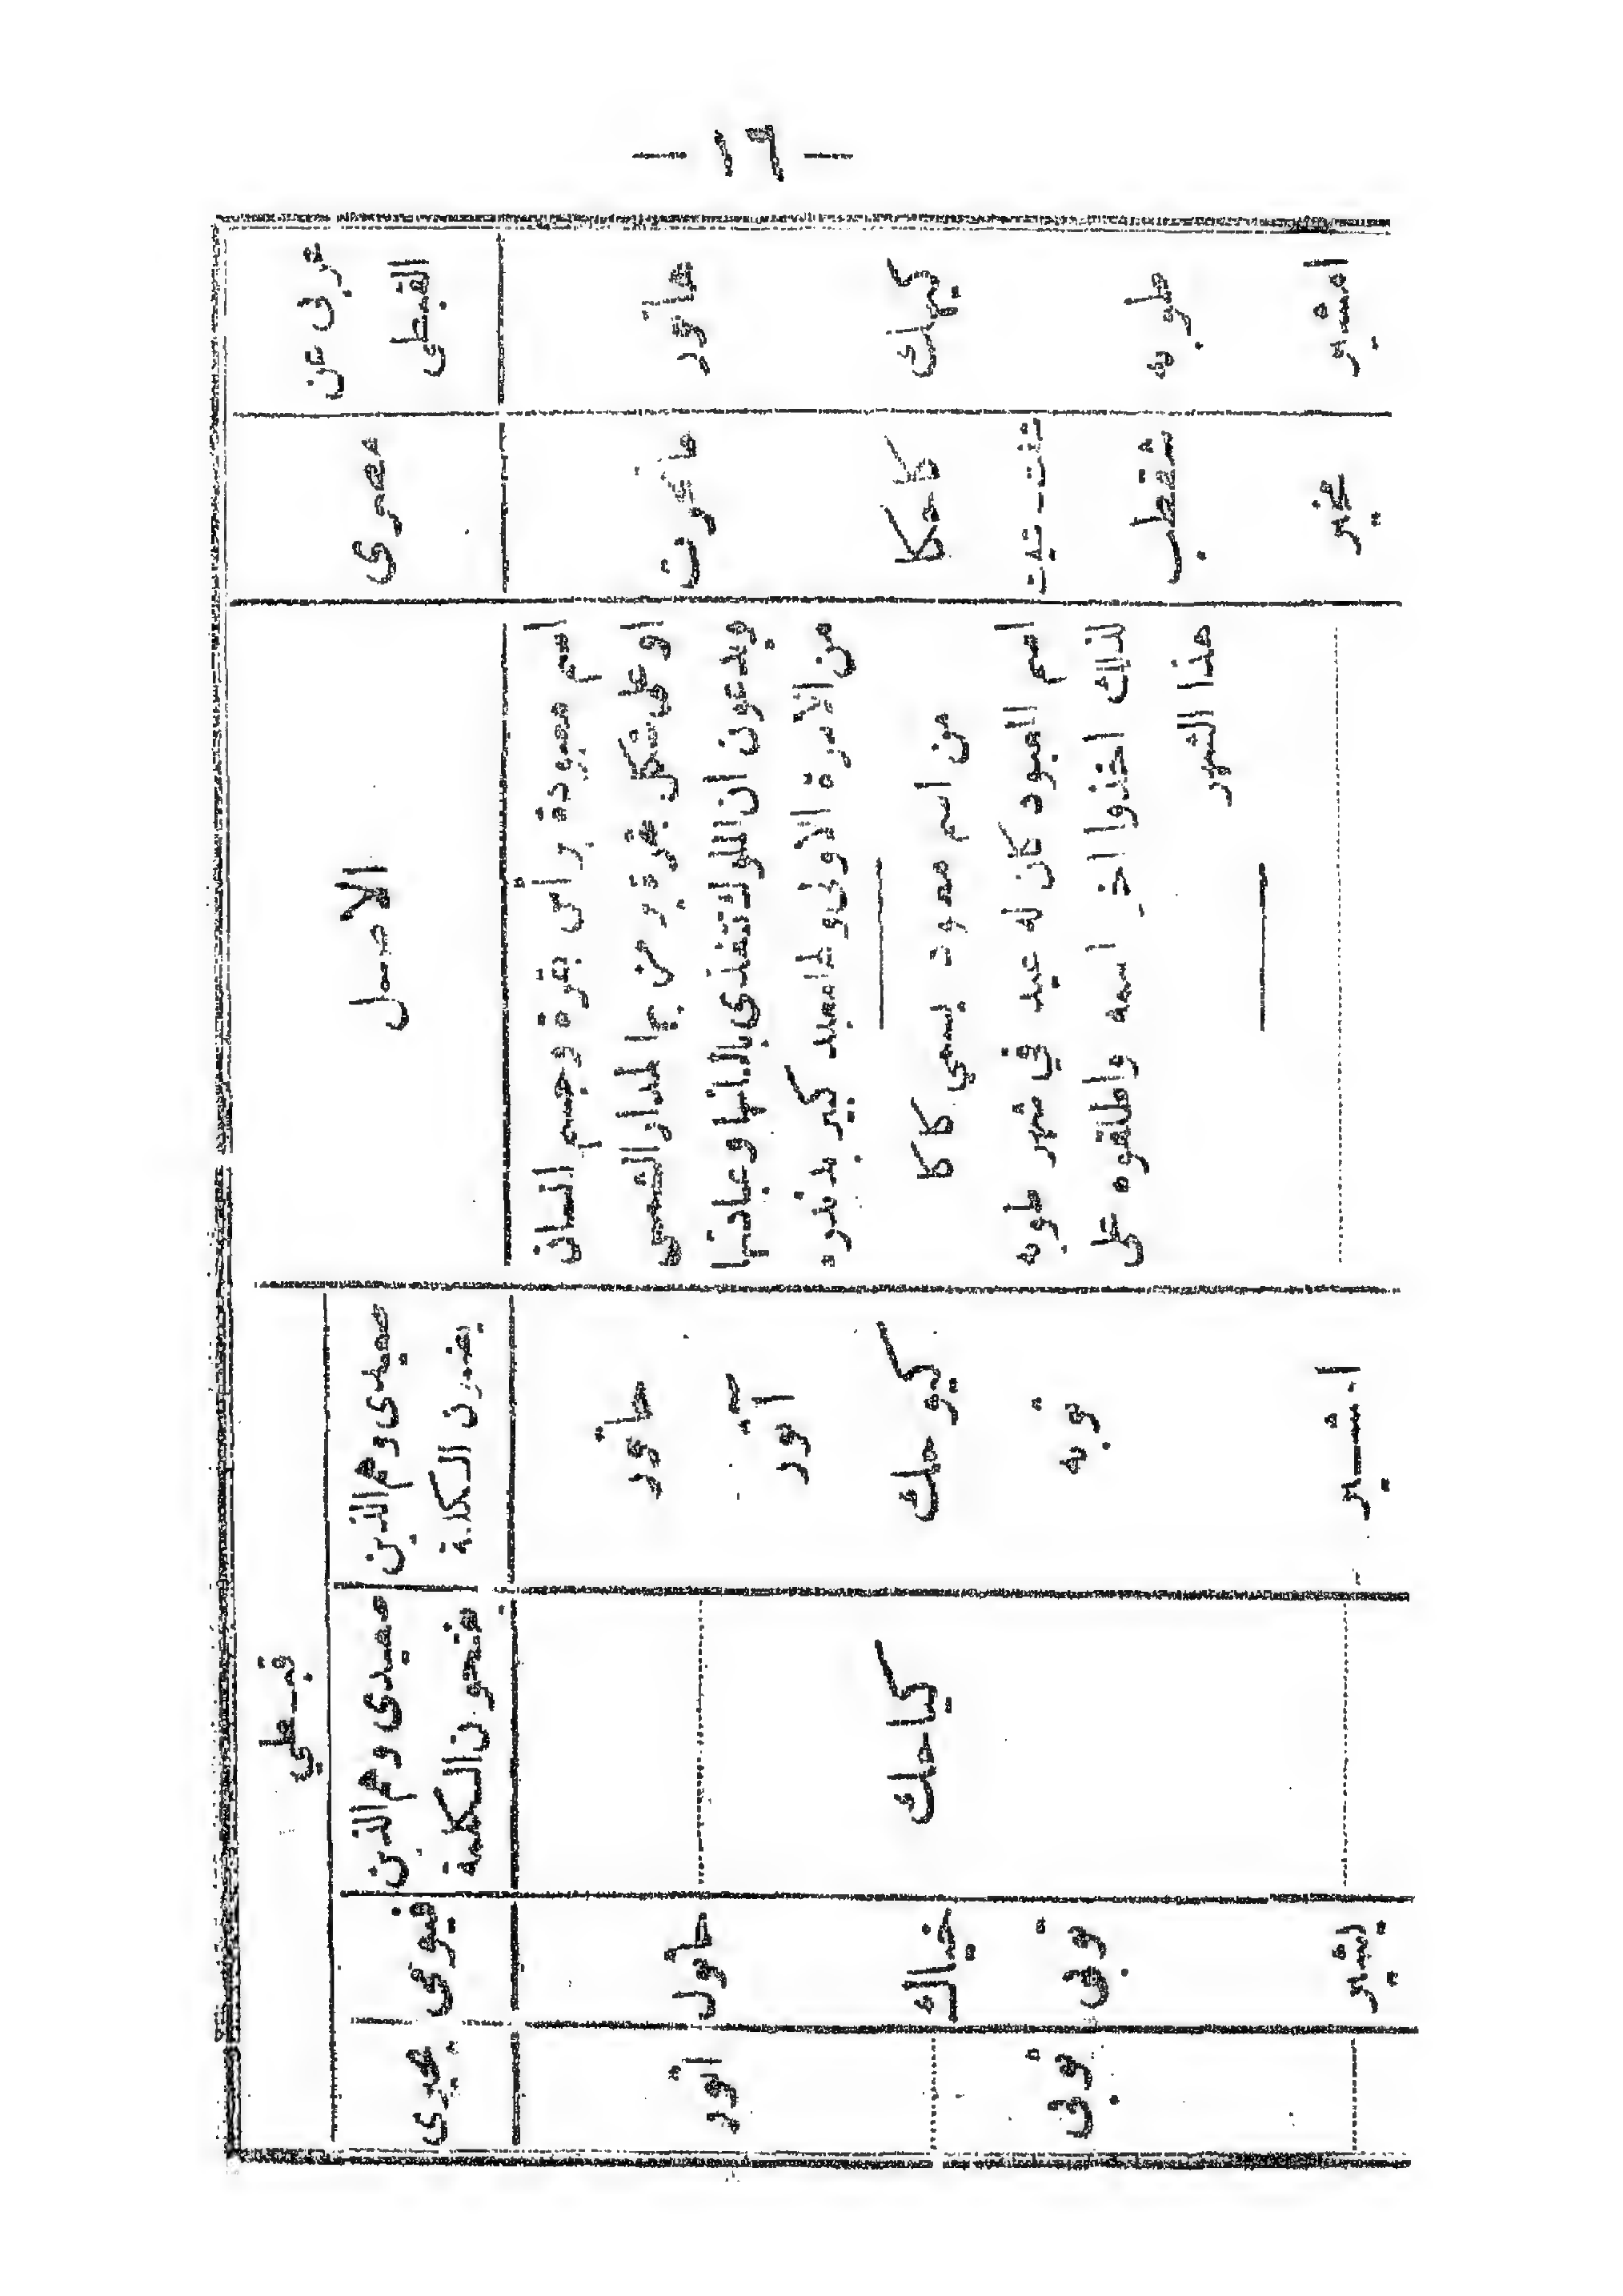 — ١٦ —
عربى عن
القبطى
مصرى
الاصل
قبطي
صعيدى وهم الذين
يضمون الكلمة
صعيدى وهم الذين
يفتحون الكلمة
فيومى
بحيرى
هاتور
اسم معبودة برأس بقرة وجسم انسان
او على شكل بقرة يرمز بها لمدار الشمس
ويدعون ان الملوك تتغذى بالبانها وعبادتها
من الاسرة الاولى ولها معبد كبير بدندره
حاتور
آتور
حاتول
اتور
كيهك
كاحكا
من اسم معبود يسمي كاكا
كيوحك
كياحك
خياك
طوبه
شقطب
اسم المعبود كان له عيد في شهر طوبه
لذلك اخذوا اخر اسمه واطلقوه على
هذا الشهر
توبه
توبى
توبى
امشير
مخير
مشير